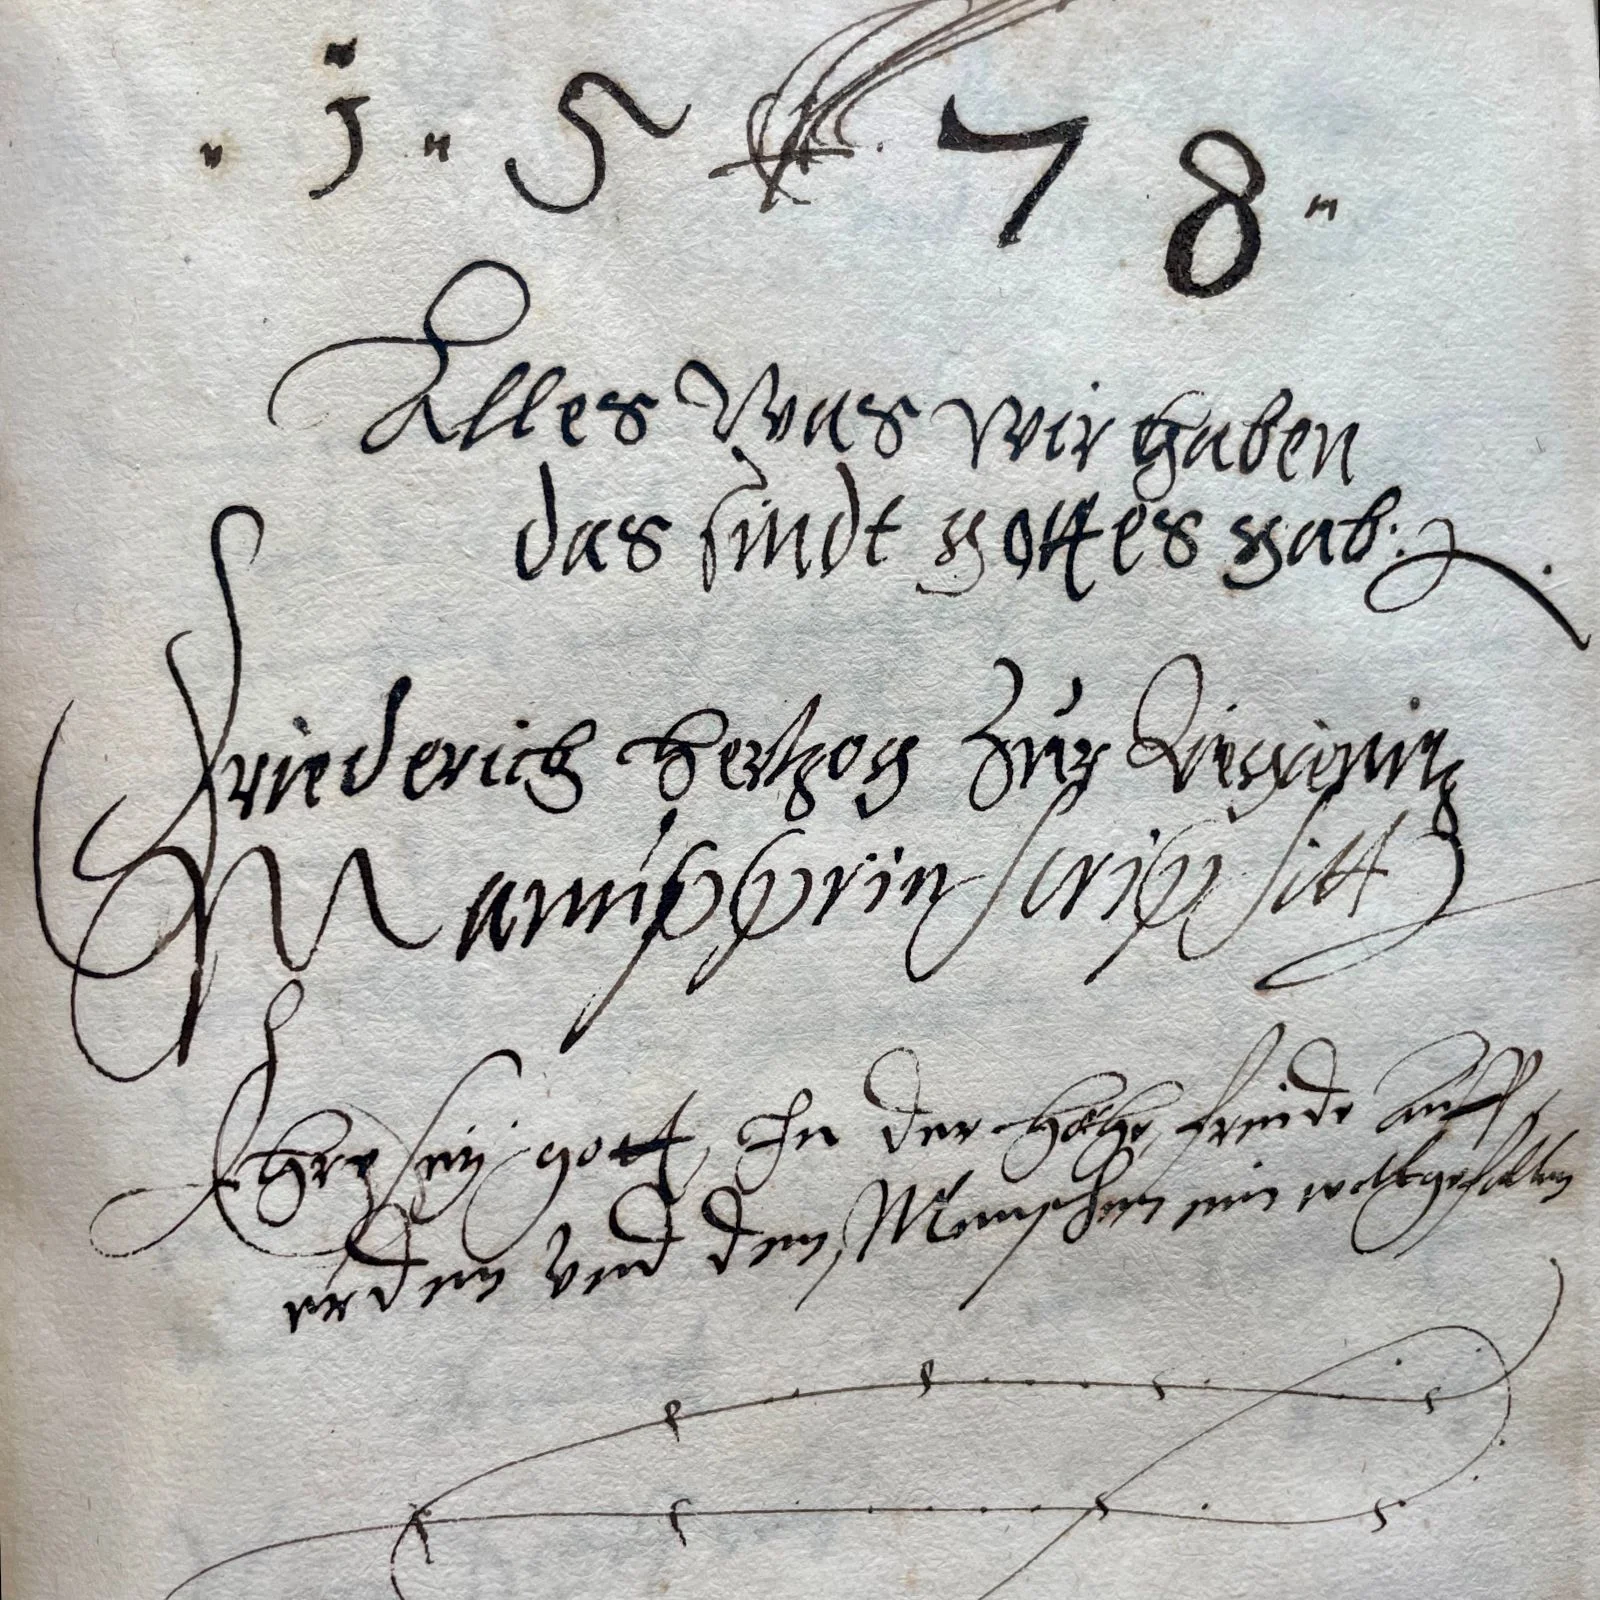 1 5 7 8
Alles Was wir haben
das sindt gottes gab.
Friederich hertzog Zur Liegenitz
Manupprin scripsitt
Ehre sey gott In der hohe, friede auff
erden vnd den Menschen ein wollgefallen